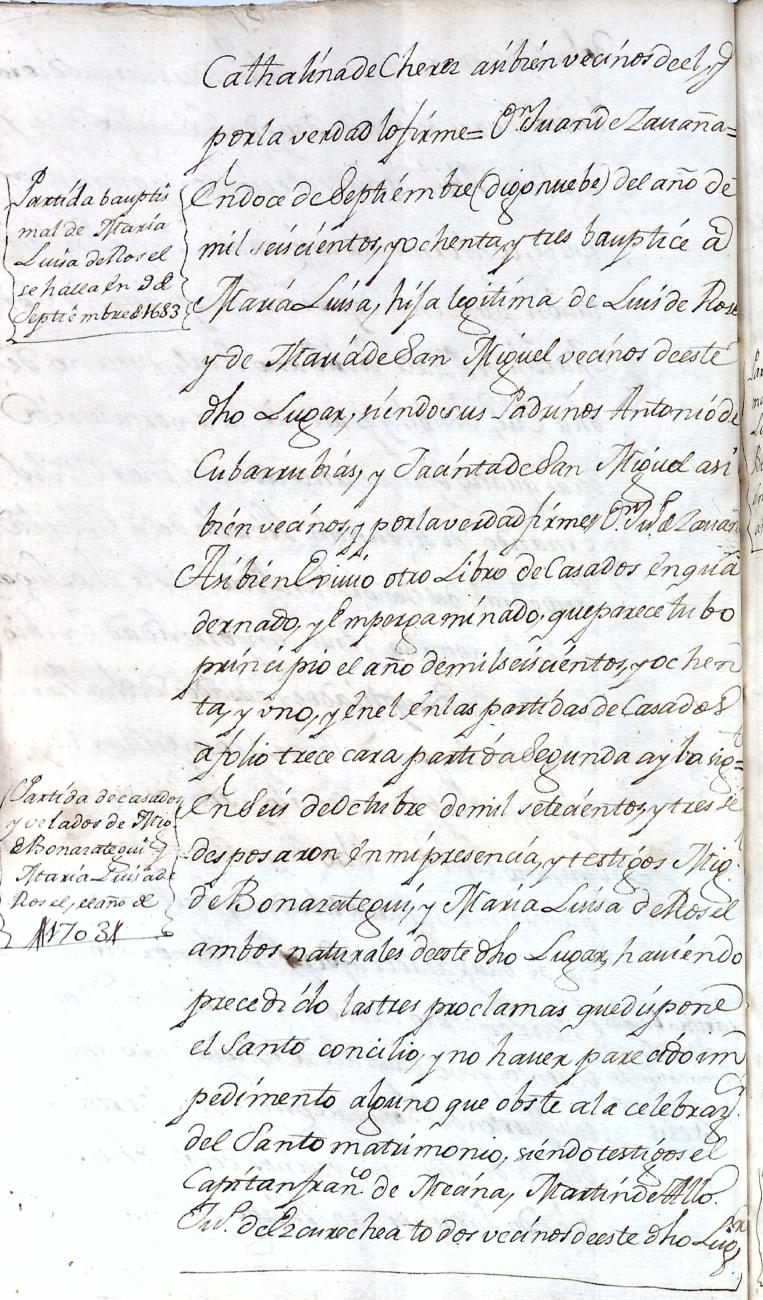 Cathalina de Cherez asibien vecinos de el, y
por la verdad lo firme = Dn. Juan de Zauaña =
Partida bauptis
mal de Maria
Luisa de Rosel
se halla en 9 de
Septiembre de 1683
En doce de Septiembre (digo nuebe) del año de
mil seiscientos, y ochenta, y tres bauptice a
Maria Luisa, hija legitima de Luis de Rosel
y de Maria de San Miguel vecinos de este
dho Lugar, siendo sus Padrinos Antonio de
Cubarrubias, y Jacinta de San Miguel asi
bien vecinos, y por la verdad firme, Dn. Jun. de Zauaña
Asibien Exiuio otro Libro de Casados enqua
dernado, y Empergaminado, que parece tubo
principio el año de mil seiscientos, y ochen
ta, y uno, y en el en las partidas de Casados
a folio trece cara partida Segunda ay la sigte =
Partida de casados
y velados de Migl.
de Bonazategui, y
Maria Luisa de
Rosel, el año de
1703
En Seis de Octubre de mil setecientos, y tres se
desposaron en mi presencia, y testigos Migl.
de Bonazategui, y Maria Luisa de Rosel
ambos naturales de este dho Lugar, haviendo
precedido las tres proclamas que dispone
el Santo concilio, y no haver parecido im
pedimento alguno que obste a la celebraz.
del Santo matrimonio, siendo testigos el
Capitan franco. de Meana, Martin de Allo.
Jun. de Ezcurechea todos vecinos de este dho Lugr.